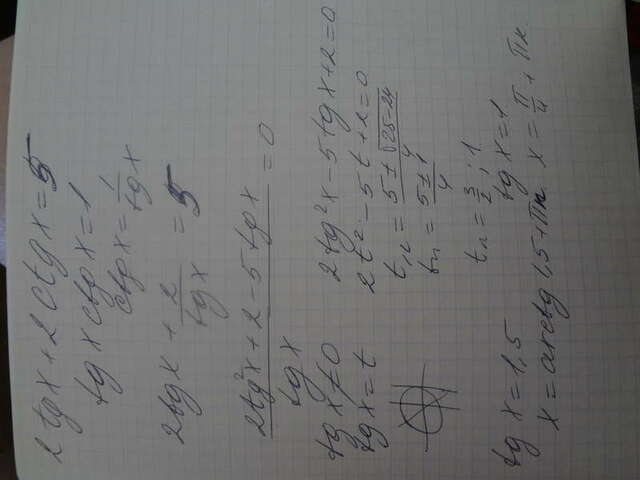 2tgx + 2ctgx = 5
tgx ctgx = 1
ctgx = 1/tgx
2tgx + 2/tgx = 5
(2tg²x + 2 - 5tgx)/tgx = 0
tgx ≠ 0
tgx = t
2tg²x - 5tgx + 2 = 0
2t² - 5t + 2 = 0
t₁,₂ = (5 ± √(25-24))/4
t₁,₂ = (5 ± 1)/4
t₁,₂ = 3/2 ; 1
tgx = 1,5
tgx = 1
x = arctg 1,5 + πк
x = π/4 + πк